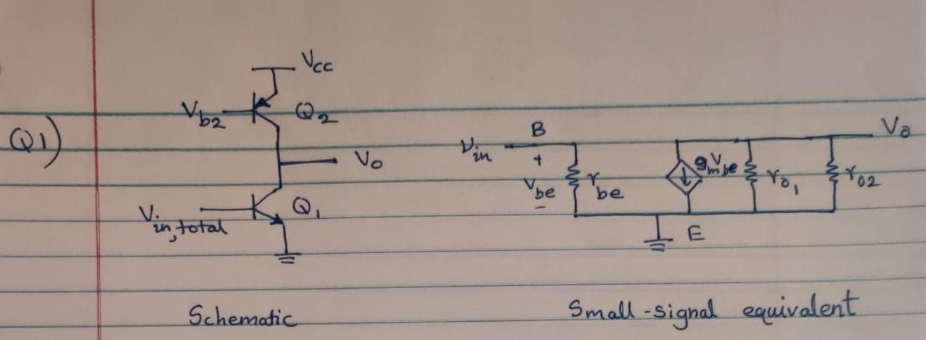 Q1)
Vcc
Vb2 Q2
Vo
Vin,total Q1
Schematic
B
Vin Vo
+
Vbe rbe gmVbe ro1 ro2
-
E
Small-signal equivalent